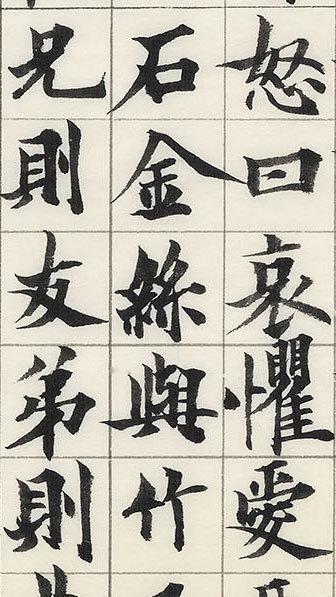 怒曰哀懼愛
石金絲與竹
兄則友弟則